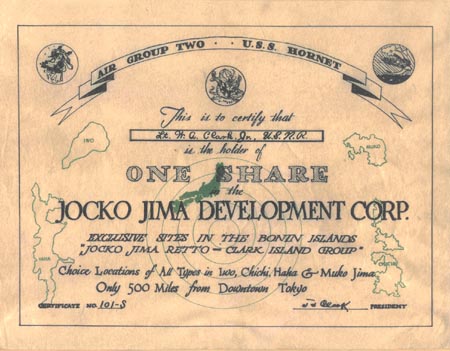 AIR GROUP TWO · · U.S.S. HORNET
This is to certify that
Lt. H. A. Clark, Jr., U.S.N.R.
is the holder of
ONE SHARE
in the
JOCKO JIMA DEVELOPMENT CORP.
EXCLUSIVE SITES IN THE BONIN ISLANDS
"JOCKO JIMA RETTO — CLARK ISLAND GROUP"
Choice Locations of All Types in Iwo, Chichi, Haha & Muko Jima
Only 500 Miles from Downtown Tokyo
CERTIFICATE NO. 101-S
J J Clark PRESIDENT
IWO
MUKO
HAHA
CHICHI